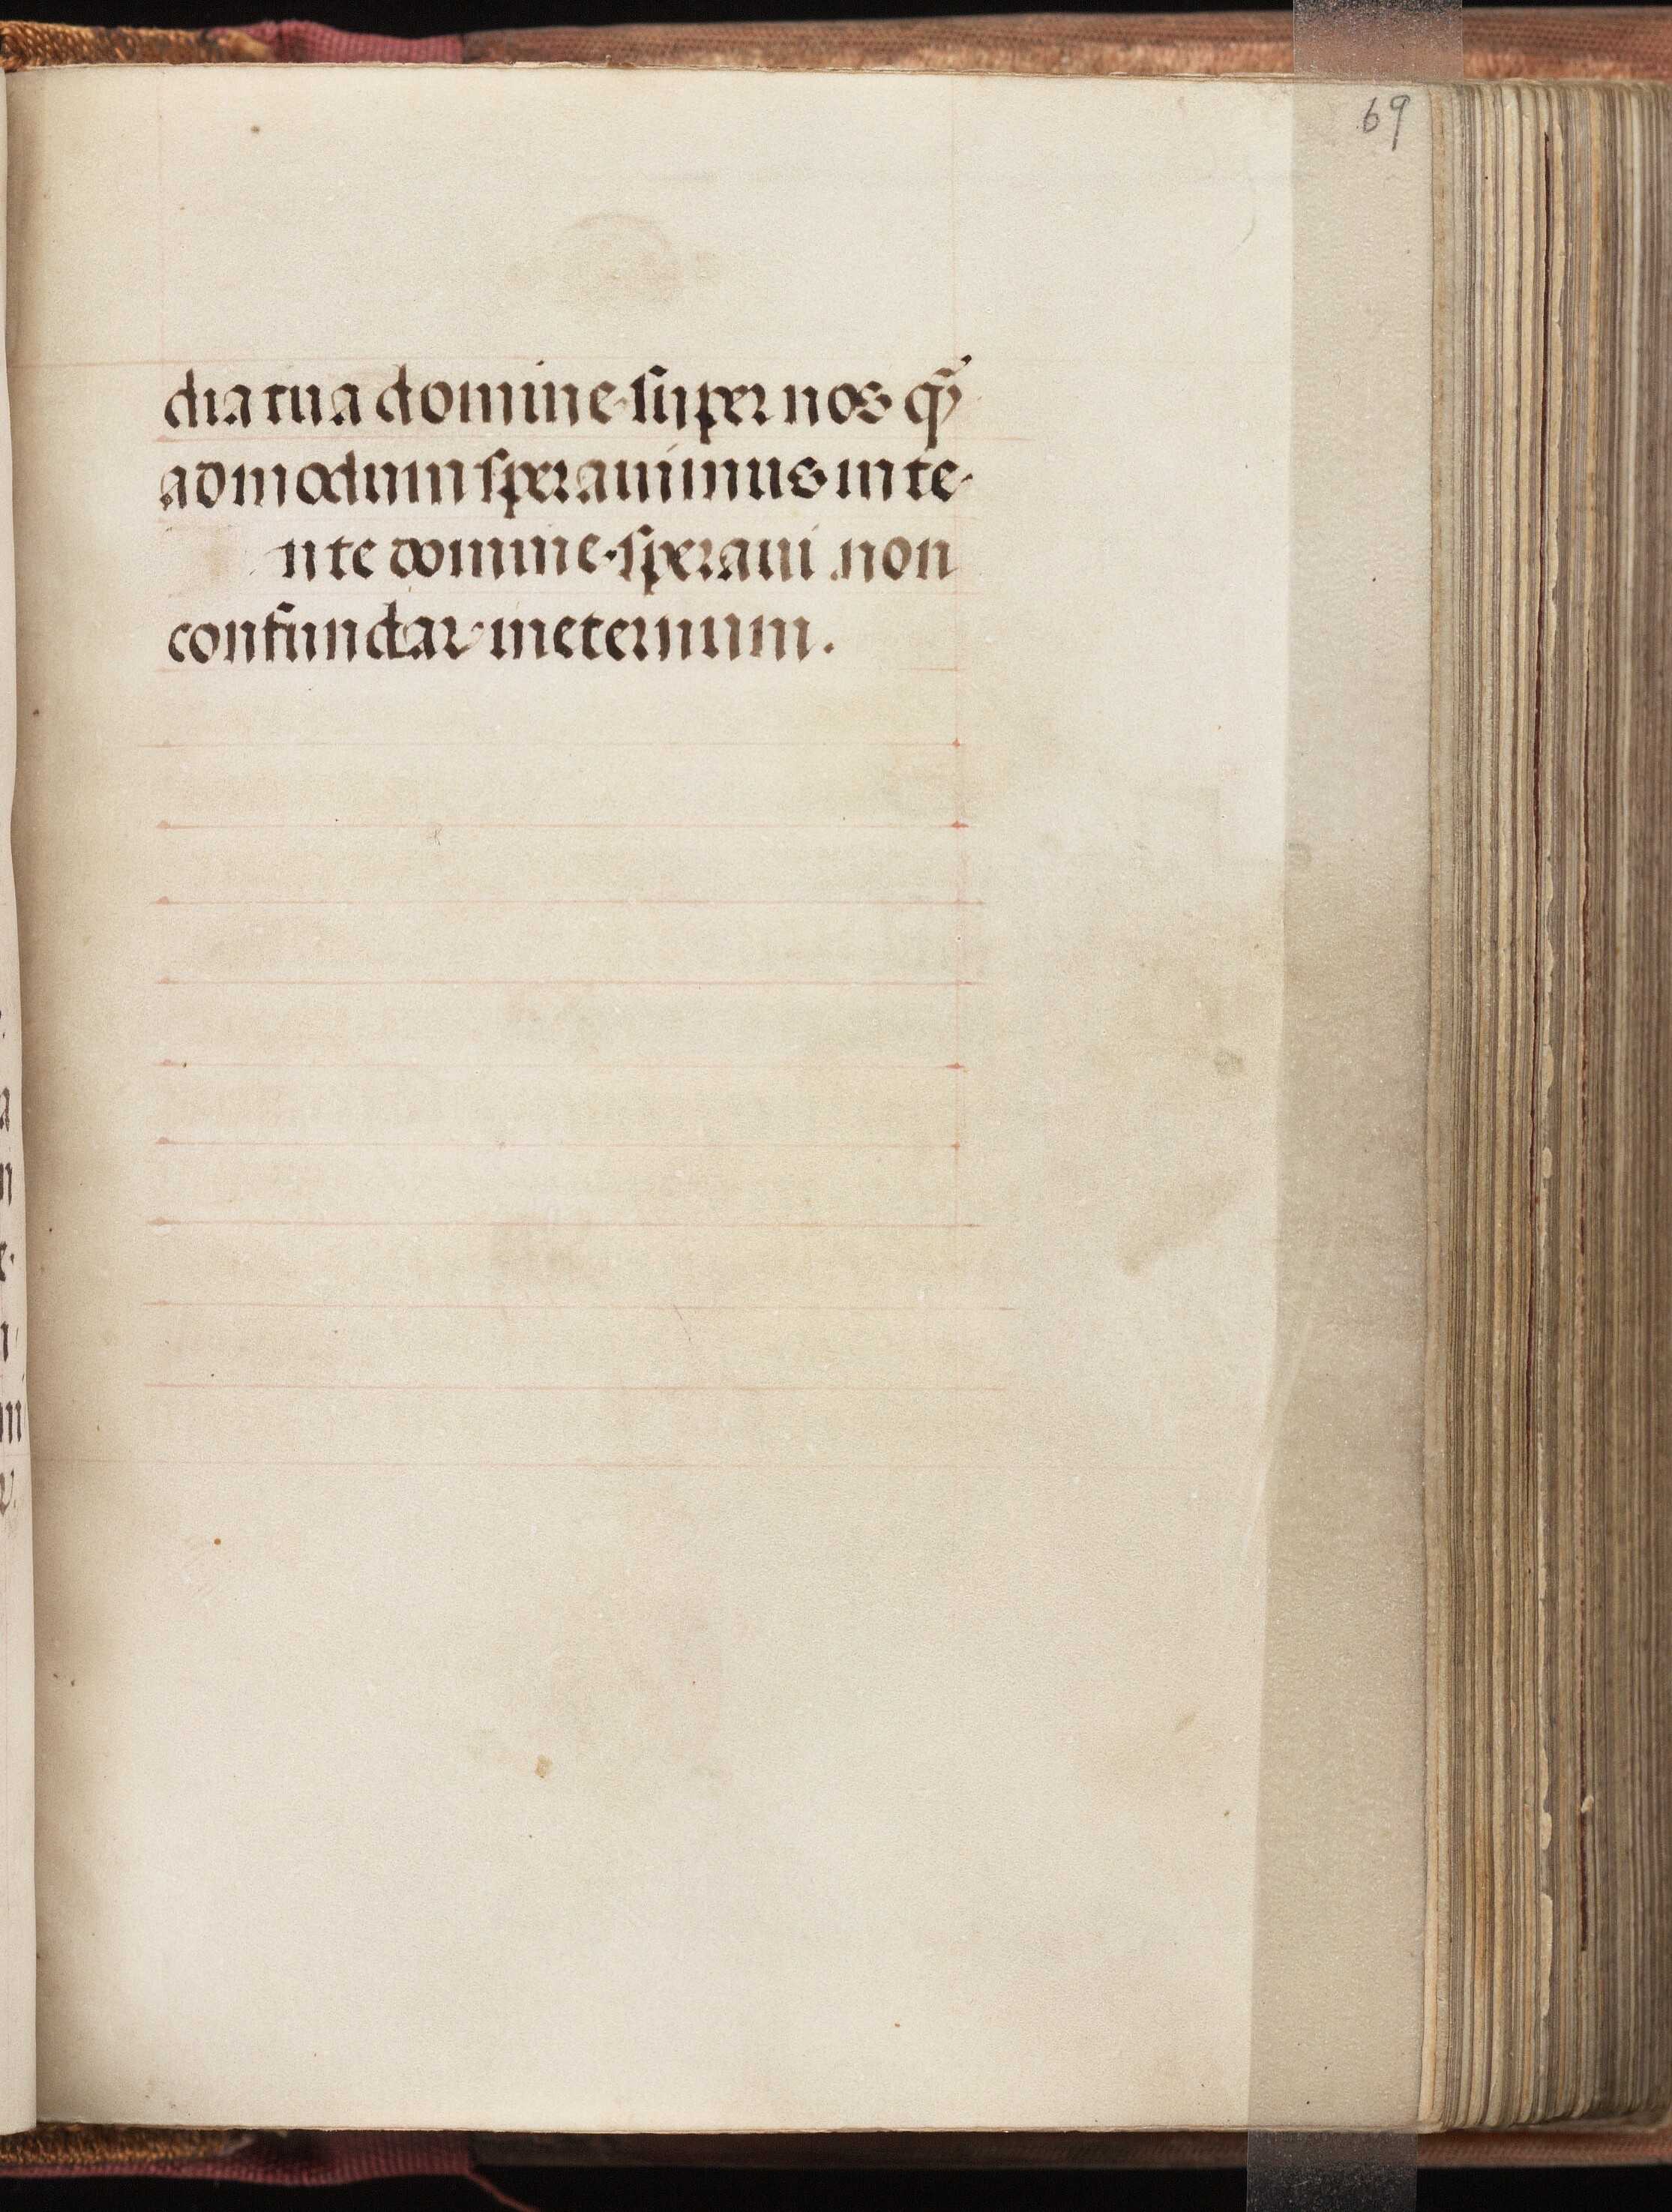 69
dia tua domine super nos qͫ
admodum sperauimus in te.
n te domine. speraui non
confundar in eternum.